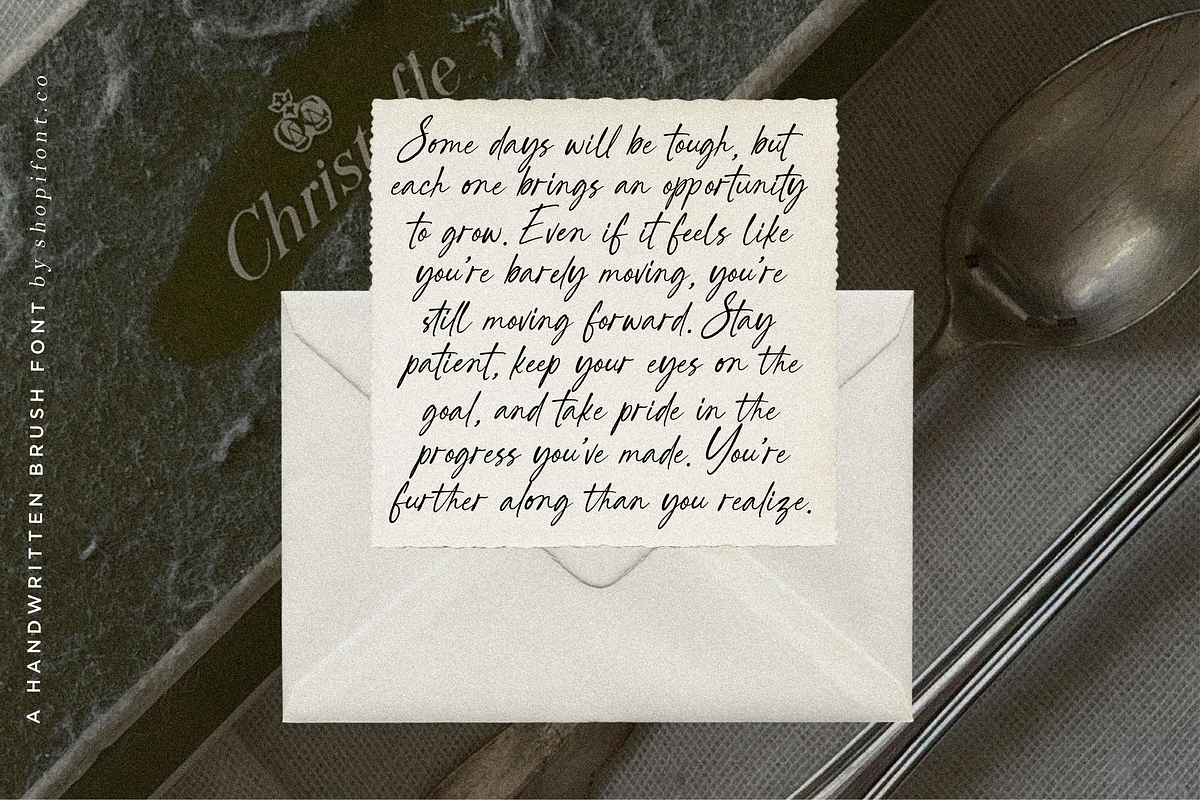 Some days will be tough, but
each one brings an opportunity
to grow. Even if it feels like
you're barely moving, you're
still moving forward. Stay
patient, keep your eyes on the
goal, and take pride in the
progress you've made. You're
further along than you realize.
A HANDWRITTEN BRUSH FONT by shopifont.co